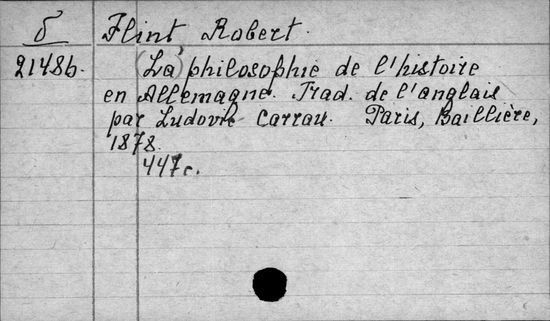 б Flint Robert.
21486. (La) philosophie de l'histoire
en Allemagne. Trad. de l'anglais
par Ludovic Carrau. Paris, Baillière,
1878.
447c.